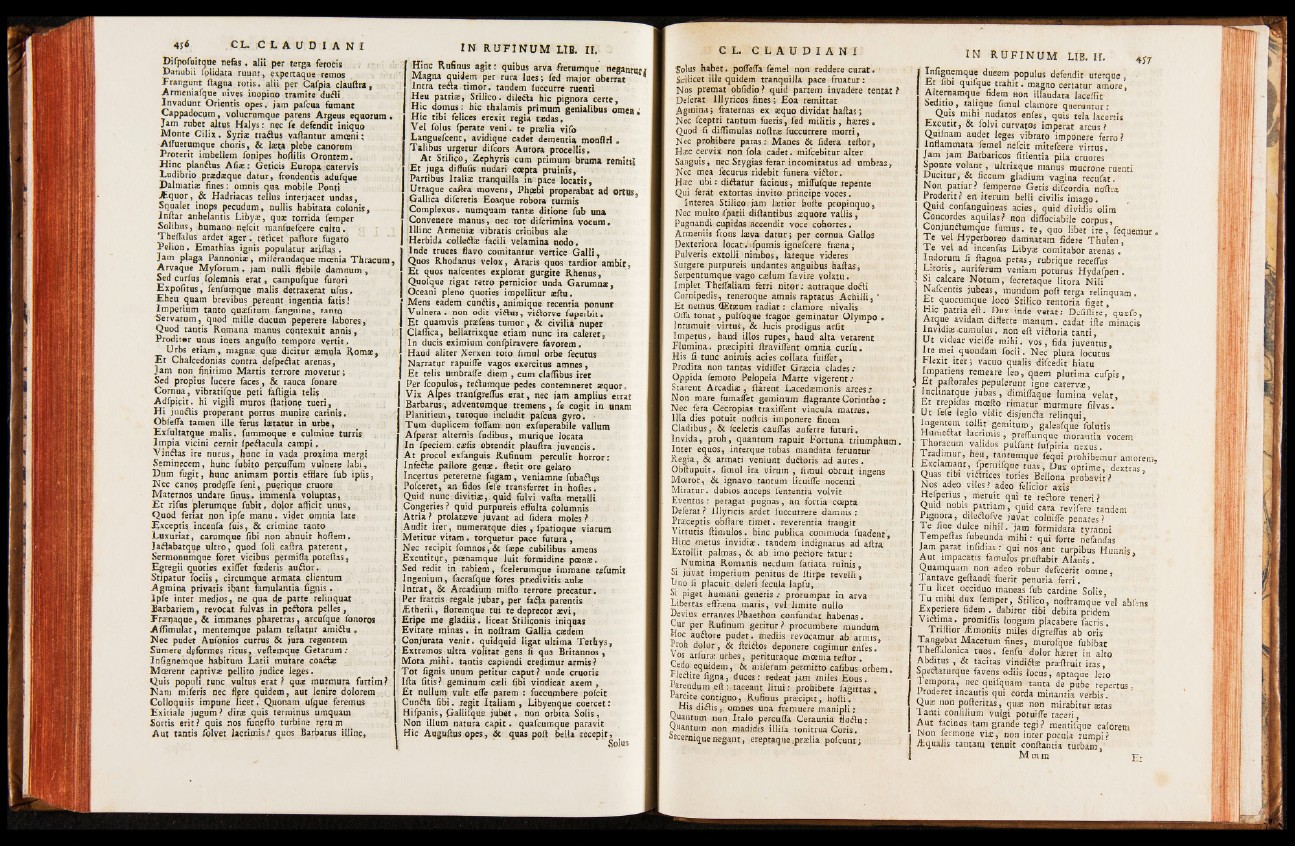 456 CL. CLAUDIANI
Difpofuitque nefas. alii per terga ferocis
Danubii folidata ruunt, expertaque remos
Frangunt ftagna rotis. alii per Cafpia clauftra,
Armeniafque nives inopino tramite ducti
Invadunt Orientis opes. jam pafcua fumant
Cappadocum, volucrumque parens Argeus equorum.
Jam rubet altus Halys: nec fe defendit iniquo
Monte Cilix. Syriæ tractus vaftantur amœni:
Affuetumque choris, & læta plebe canorum
Proterit imbellem fonipes hoftilis Orontem.
Hinc planctus Afiæ: Geticis Europa catervis
Ludibrio prædæque datur, frondentis adufque
Dalmatiæ fines: omnis qua mobile Ponti
Æquor, & Hadriacas tellus interjacet undas,
Squalet inops pecudum, nullis habitata colonis,
Inftar anhelantis Libyæ, quæ torrida femper
Solibus, humano nefcit manfuefcere cultu.
Theffalus ardet ager. reticet paftore fugato
Pelion. Emathias ignis populatur ariftas.
Jam plaga Pannoniæ, miferandaque mœnia Thracum,
Arvaque Myforum, jam nulli flebile damnum,
Sed curfus folemnis erat, campufque furori
Expofitus, fenfumque malis detraxerat ufus.
Eheu quam brevibus pereunt ingentia fatis!
Imperium tanto quæfitum fanguine, tanto
Servatum, quod mille ducum peperere labores,
Quod tantis Romana manus contexuit annis,
Proditor unus iners angufto tempore vertit.
Urbs etiam, magnæ quæ dicitur æmula Romæ,
Et Chalcedonias contra defpectat arenas,
Jam non finitimo Martis terrore movetur;
Sed propius lucere faces, & rauca fonare
Cornua, vibratifque peti faftigia telis
Adfpicit. hi vigili muros ftatione tueri,
Hi junctis properant portus munire carinis.
Obfeffa tamen ille ferus lætatur in urbe,
Exfultatque malis. fummoque e culmine turris
Impia vicini cernit fpectacula campi.
Vinctas ire nurus, hunc in vada proxima mergi
Seminecem, hunc fubito percuffum vulnere labi,
Dum fugit, hunc animam portis efflare fub ipfis,
Nec canos prodeffe feni, puerique cruore
Maternos undare finus. immenfa voluptas,
Et rifus plerumque fubit, dolor afficit unus,
Quod feriat non ipfe manu. videt omnia late
Exceptis incenfa fuis, & crimine tanto
Luxuriat, carumque fibi non abnuit hoftem.
Jactabatque ultro, quod foli caftra paterent,
Sermonumque foret vicibus permiffa poteftas,
Egregii quoties exiffet fœderis auctor.
Stipatur fociis, circumque armata clientum
Agmina privatis ibant famulantia fignis.
Ipfe inter medios, ne qua de parte relinquat
Barbariem, revocat fulvas in pectora pelles,
Frænaque, & immanes pharetras, arcufque fonoros
Affimulat, mentemque palam teftatur amictu.
Nec pudet Aufonios currus & jura regentem
Sumere deformes ritus, veftemque Getarum:
Infignemque habitum Latii mutare coactæ
Mœrent captivæ pellito judice leges.
Quis populi tunc vultus erat? quæ murmura furtim?
Nam miferis nec flere quidem, aut lenire dolorem
Colloquiis impune licet. Quonam ufque feremus
Exitiale jugum? diræ quis terminus umquam
Sortis erit? quis nos funefto turbine rerum
Aut tantis folvet lacrimis? quos Barbarus illinc,
IN RUFINUM LIB. II.
Hinc Rufinus agit: quibus arva fretumque negantur?
Magna quidem per rura lues; fed major oberrat
Intra tecta timor. tandem fuccurre ruenti
Heu patriæ, Stilico. dilecta hic pignora certe,
Hic domus: hic thalamis primum genialibus omen,
Hic tibi felices erexit regia tædas.
Vel folus fperate veni. te prælia vifo
Languefcent, avidique cadet dementia monftri.
Talibus urgetur difcors Aurora procellis.
At Stilico, Zephyris cum primum bruma remitti
Et juga diffufis nudari cœpta pruinis,
Partibus Italiæ tranquilla in pace locatis,
Utraque caftra movens, Phœbi properabat ad ortus,
Gallica difcretis Eoaque robora turmis
Complexus. numquam tantæ ditione fub una
Convenere manus, nec tot difcrimina vocum.
Illinc Armeniæ vibratis crinibus alæ
Herbida collectæ facili velamina nodo.
Inde truces flavo comitantur vertice Galli,
Quos Rhodanus velox, Araris quos tardior ambit,
Et quos nafcentes explorat gurgite Rhenus,
Quofque rigat retro pernicior unda Garumnæ,
Oceani pleno quoties impellitur æftu.
Mens eadem cunctis, animique recentia ponunt
Vulnera. non odit victus, victorve fuperbit.
Et quamvis præfens tumor, & civilia nuper
Claffica, bellatrixque etiam nunc ira caleret,
In ducis eximium confpiravere favorem.
Haud aliter Xerxen toto fimul orbe fecutus
Narratur rapuiffe vagos exercitus amnes,
Et telis umbraffe diem, cum claffibus iret
Per fcopulos, tectumque pedes contemneret æquor.
Vix Alpes tranfgreffus erat, nec jam amplius errat
Barbarus, adventumque tremens, fe cogit in unam
Planitiem, tutoque includit pafcua gyro.
Tum duplicem foffam non exfuperabile vallum
Afperat alternis fudibus, murique locata
In fpeciem cæfis obtendit plauftra juvencis.
At procul exfanguis Rufinum perculit horror:
Infectæ pallore genæ. ftetit ore gelato
Incertus peteretne fugam, veniamne fubactus
Pofceret, an fidos fefe transferret in hoftes.
Quid nunc divitiæ, quid fulvi vafta metalli
Congeries? quid purpureis effulta columnis
Atria? prolatæve juvant ad fidera moles?
Audit iter, numeratque dies, fpatioque viarum
Metitur vitam. torquetur pace futura,
Nec recipit fomnos, & fæpe cubilibus amens
Excutitur, pœnamque luit formidine pœnæ.
Sed redit in rabiem, fcelerumque immane refumit
Ingenium, facrafque fores prædivitis aulæ
Intrat, & Arcadium mifto terrore precatur.
Per fratris regale jubar, per facta parentis
Ætherii, floremque tui te deprecor ævi,
Eripe me gladiis. liceat Stiliconis iniquas
Evitare minas. in noftram Gallia cædem
Conjurata venit. quidquid ligat ultima Tethys,
Extremos ultra volitat gens fi qua Britannos,
Mota mihi. tantis capiendi credimur armis?
Tot fignis unum petitur caput? unde cruoris
Ifta fitis? geminum cæli fibi vindicat axem,
Et nullum vult effe parem: fuccumbere pofcit
Cuncta fibi. regit Italiam, Libyenque coercet:
Hifpanis, Gallifque jubet. non orbita Solis,
Non illum natura capit. quafcumque paravit
Hic Auguftus opes, & quas poft bella recepit,
Solus
CL. CLAUDIANI
Solus habet. poffeffa femel non reddere curat.
Scilicet ille quidem tranquilla pace fruatur:
Nos premat obfidio? quid partem invadere tentat?
Deferat Illyricos fines; Eoa remittat
Agmina; fraternas ex æquo dividat haftas;
Nec fceptri tantum fueris, fed militis, hæres.
Quod fi diffimulas noftræ fuccurrere morti,
Nec prohibere paras: Manes & fidera teftor,
Hæc cervix non fola cadet. mifcebitur alter
Sanguis, nec Stygias ferar incomitatus ad umbras,
Nec mea fecurus ridebit funera victor.
Hæc ubi: dictatur facinus, miffufque repente
Qui ferat extortas invito principe voces.
Interea Stilico jam lætior hofte propinquo,
Nec multo fpatii diftantibus æquore vallis,
Pugnandi cupidas accendit voce cohortes.
Armeniis frons læva datur; per cornua Gallos
Dexteriora locat. fpumis ignefcere fræna,
Pulveris extolli nimbos, lateque videres
Surgere purpureis undantes anguibus haftas,
Serpentumque vago cælum fævire volatu.
Implet Theffaliam ferri nitor: antraque docti
Cornipedis, teneroque amnis raptatus Achilli,
Et nemus Œtæum radiat: clamore nivalis
Offa tonat, pulfoque fragor geminatur Olympo.
Intumuit virtus, & lucis prodigus arfit
Impetus, haud illos rupes, haud alta vetarent
Flumina. præcipiti ftraviffent omnia curfu.
His fi tunc animis acies collata fuiffet,
Prodita non tantas vidiffet Græcia clades:
Oppida femoto Pelopeia Marte vigerent:
Starent Arcadiæ, ftarent Lacedæmonis arces:
Non mare fumaffet geminum flagrante Corintho:
Nec fera Cecropias traxiffent vincula matres.
Illa dies potuit noftris imponere finem
Cladibus, & fceleris cauffas auferre futuri.
Invida, proh, quantum rapuit Fortuna triumphum.
Inter equos, interque tubas mandata feruntur
Regia, & armati veniunt ductoris ad aures.
Obftupuit. fimul ira virum, fimul obruit ingens
Mœror, & ignavo tantum licuiffe nocenti
Miratur. dubios anceps fententia volvit
Eventus: peragat pugnas, an fortia cœpta
Deferat? Illyricis ardet fuccurrere damnis:
Præceptis obftare timet. reverentia frangit
Virtutis ftimulos. hinc publica commoda fuadent,
Hinc metus invidiæ. tandem indignatus ad aftra
Extollit palmas, & ab imo pectore fatur:
Numina Romanis necdum fatiata ruinis,
Si juvat imperium penitus de ftirpe revelli,
Uno fi placuit deleri fecula lapfu,
Si piget humani generis: prorumpat in arva
Libertas effræna maris, vel limite nullo
Devius errantes Phaethon confundat habenas.
Cur per Rufinum geritur? procumbere mundum
Hoc auctore pudet. mediis revocamur ab armis,
Proh dolor, & ftrictos deponere cogimur enfes.
Vos arfuræ urbes, perituraque mœnia teftor.
Cedo equidem, & miferum permitto cafibus orbem.
Flectite figna, duces: redeat jam miles Eous.
Parendum eft: taceant litui: prohibete fagittas.
Parcite contiguo, Rufinus præcipit, hofti.
His dictis, omnes una fremuere manipli:
Quantum non Italo percuffa Ceraunia fluctu:
Quantum non madidis illifa tonitrua Coris.
Secernique negant, ereptaque prælia pofcunt;
IN RUFINUM LIB. II. 457
Infignemque ducem populus defendit uterque,
Et fibi quifque trahit. magno certatur amore,
Alternamque fidem non illaudata laceffit
Seditio, talique fimul clamore queruntur:
Quis mihi nudatos enfes, quis tela lacertis
Excutit, & folvi curvatos imperat arcus?
Quifnam audet leges vibrato imponere ferro?
Inflammata femel nefcit mitefcere virtus.
Jam jam Barbaricos fitientia pila cruores
Sponte volant, ultrixque manus mucrone ruenti
Ducitur, & ficcum gladium vagina recufat.
Non patiar? femperne Getis difcordia noftra
Proderit? en iterum belli civilis imago.
Quid confanguineas acies, quid dividis olim
Concordes aquilas? non diffociabile corpus,
Conjunctumque fumus. te, quo libet ire, fequemur.
Te vel Hyperboreo damnatam fidere Thulen,
Te vel ad incenfas Libyæ comitabor arenas.
Indorum fi ftagna petas, rubrique receffus
Litoris, auriferum veniam poturus Hydafpen.
Si calcare Notum, fecretaque litora Nili
Nafcentis jubeas, mundum poft terga relinquam.
Et quocumque loco Stilico tentoria figet,
Hic patria eft. Dux inde vetat: Definite, quæfo,
Atque avidam differte manum. cadat ifte minacis
Invidiæ cumulus. non eft victoria tanti,
Ut videar viciffe mihi. vos, fida juventus,
Ite mei quondam focii. Nec plura locutus
Flexit iter; vacuo qualis difcedit hiatu
Impatiens remeare leo, quem plurima cufpis,
Et paftorales pepulerunt igne catervæ,
Inclinatque jubas, dimiffaque lumina velat,
Et trepidas mœfto rimatur murmure filvas.
Ut fefe legio vidit disjuncta relinqui,
Ingentem tollit gemitum, galeafque folutis
Humectat lacrimis, preffumque morantia vocem
Thoracum validos pulfant fufpiria nexus.
Tradimur, heu, tantumque fequi prohibemur amorem,
Exclamant, fpernifque tuas, Dux optime, dextras,
Quas tibi victrices toties Bellona probavit?
Nos adeo viles? adeo felicior axis
Hefperius, meruit qui te rectore teneri?
Quid nobis patriam, quid cara revifere tandem
Pignora, dilectofve juvat coluiffe penates?
Te fine dulce nihil. jam formidata tyranni
Tempeftas fubeunda mihi: qui forte nefandas
Jam parat infidias: qui nos aut turpibus Hunnis,
Aut impacatis famulos præftabit Alanis.
Quamquam non adeo robur defecerit omne,
Tantave geftandi fuerit penuria ferri.
Tu licet occiduo maneas fub cardine Solis,
Tu mihi dux femper, Stilico, noftramque vel abfens
Experiere fidem. dabitur tibi debita pridem
Victima. promiffis longum placabere facris.
Triftior Æmoniis miles digreffus ab oris
Tangebat Macetum fines, murofque fubibat
Theffalonica tuos. fenfu dolor hæret in alto
Abditus, & tacitas vindictæ præftruit iras,
Spectaturque favens odiis locus, aptaque leto
Tempora, nec quifquam tanta de pube repertus,
Proderet incautis qui corda minantia verbis.
Quæ non pofteritas, quæ non mirabitur ætas
Tanti confilium vulgi potuiffe taceri,
Aut facinus tam grande tegi? mentifque calorem
Non fermone viæ, non inter pocula rumpi?
Æqualis tantam tenuit conftantia turbam,
Mmm Et